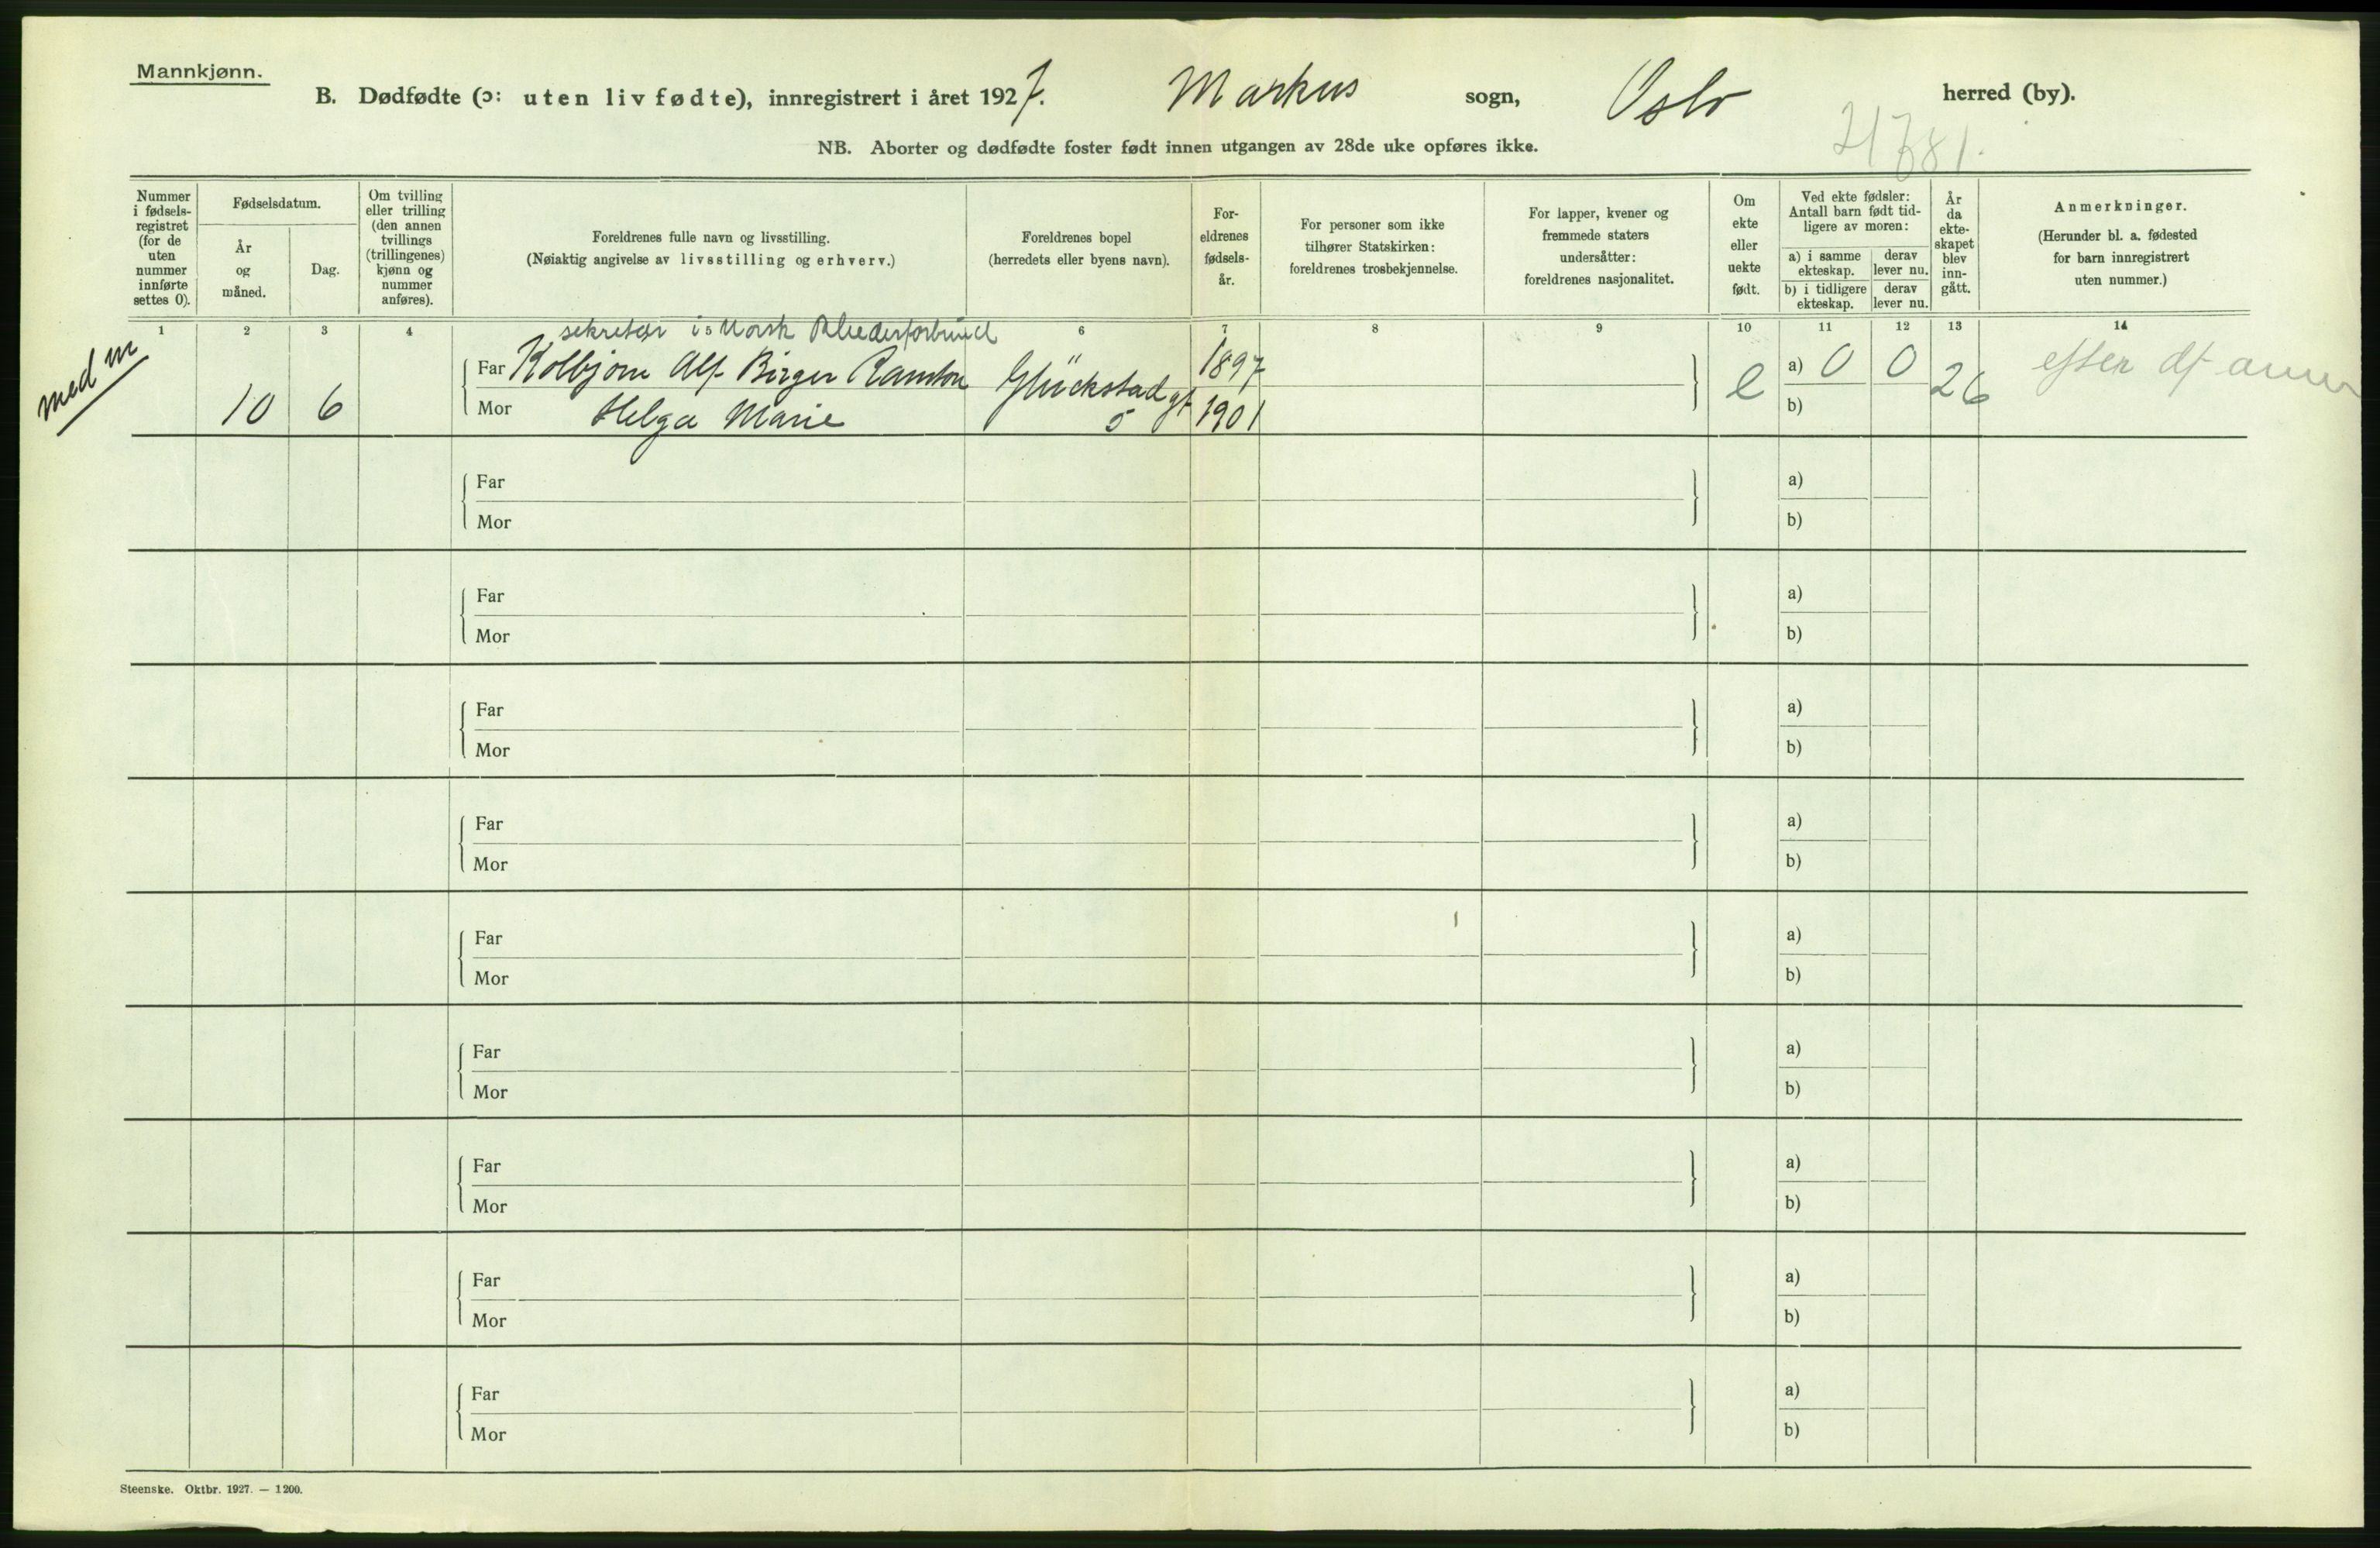 Mannkjønn.
B. Dødfødte (ɔ: uten liv fødte), innregistrert i året 1927. Markus sogn, Oslo herred (by).
NB. Aborter og dødfødte foster født innen utgangen av 28de uke opføres ikke.
Nummer
i fødsels-
registret
(for de
uten
nummer
innførte
settes 0).
Fødselsdatum.
År
og
måned.
Dag.
Om tvilling
eller trilling
(den annen
tvillings
(trillingenes)
kjønn og
nummer
anføres).
Foreldrenes fulle navn og livsstilling.
(Nøiaktig angivelse av livsstilling og erhverv.)
Foreldrenes bopel
(herredets eller byens navn).
For-
eldrenes
fødsels-
år.
For personer som ikke
tilhører Statskirken:
foreldrenes trosbekjennelse.
For lapper, kvener og
fremmede staters
undersåtter:
foreldrenes nasjonalitet.
Om
ekte
eller
uekte
født.
Ved ekte fødsler:
Antall barn født tid-
ligere av moren:
a) i samme
ekteskap.
derav
lever nu.
b) i tidligere
ekteskap.
derav
lever nu.
År
da
ekte-
skapet
blev
inn-
gått.
Anmerkninger.
(Herunder bl. a. fødested
for barn innregistrert
uten nummer.)
1 2 3 4 6 7 8 9 10 11 12 13 14
med m
sekretær i Norsk Rhederforbund
10 6
Far Kolbjørn Alf Birger Glückstad gt 1897 e a) 0 0 26
Mor Helga Marie 5 1901 b)
Far a)
Mor b)
Far a)
Mor b)
Far a)
Mor b)
Far a)
Mor b)
Far a)
Mor b)
Far a)
Mor b)
Far a)
Mor b)
Far a)
Mor b)
Far a)
Mor b)
Steenske. Oktbr. 1927. — 1200.